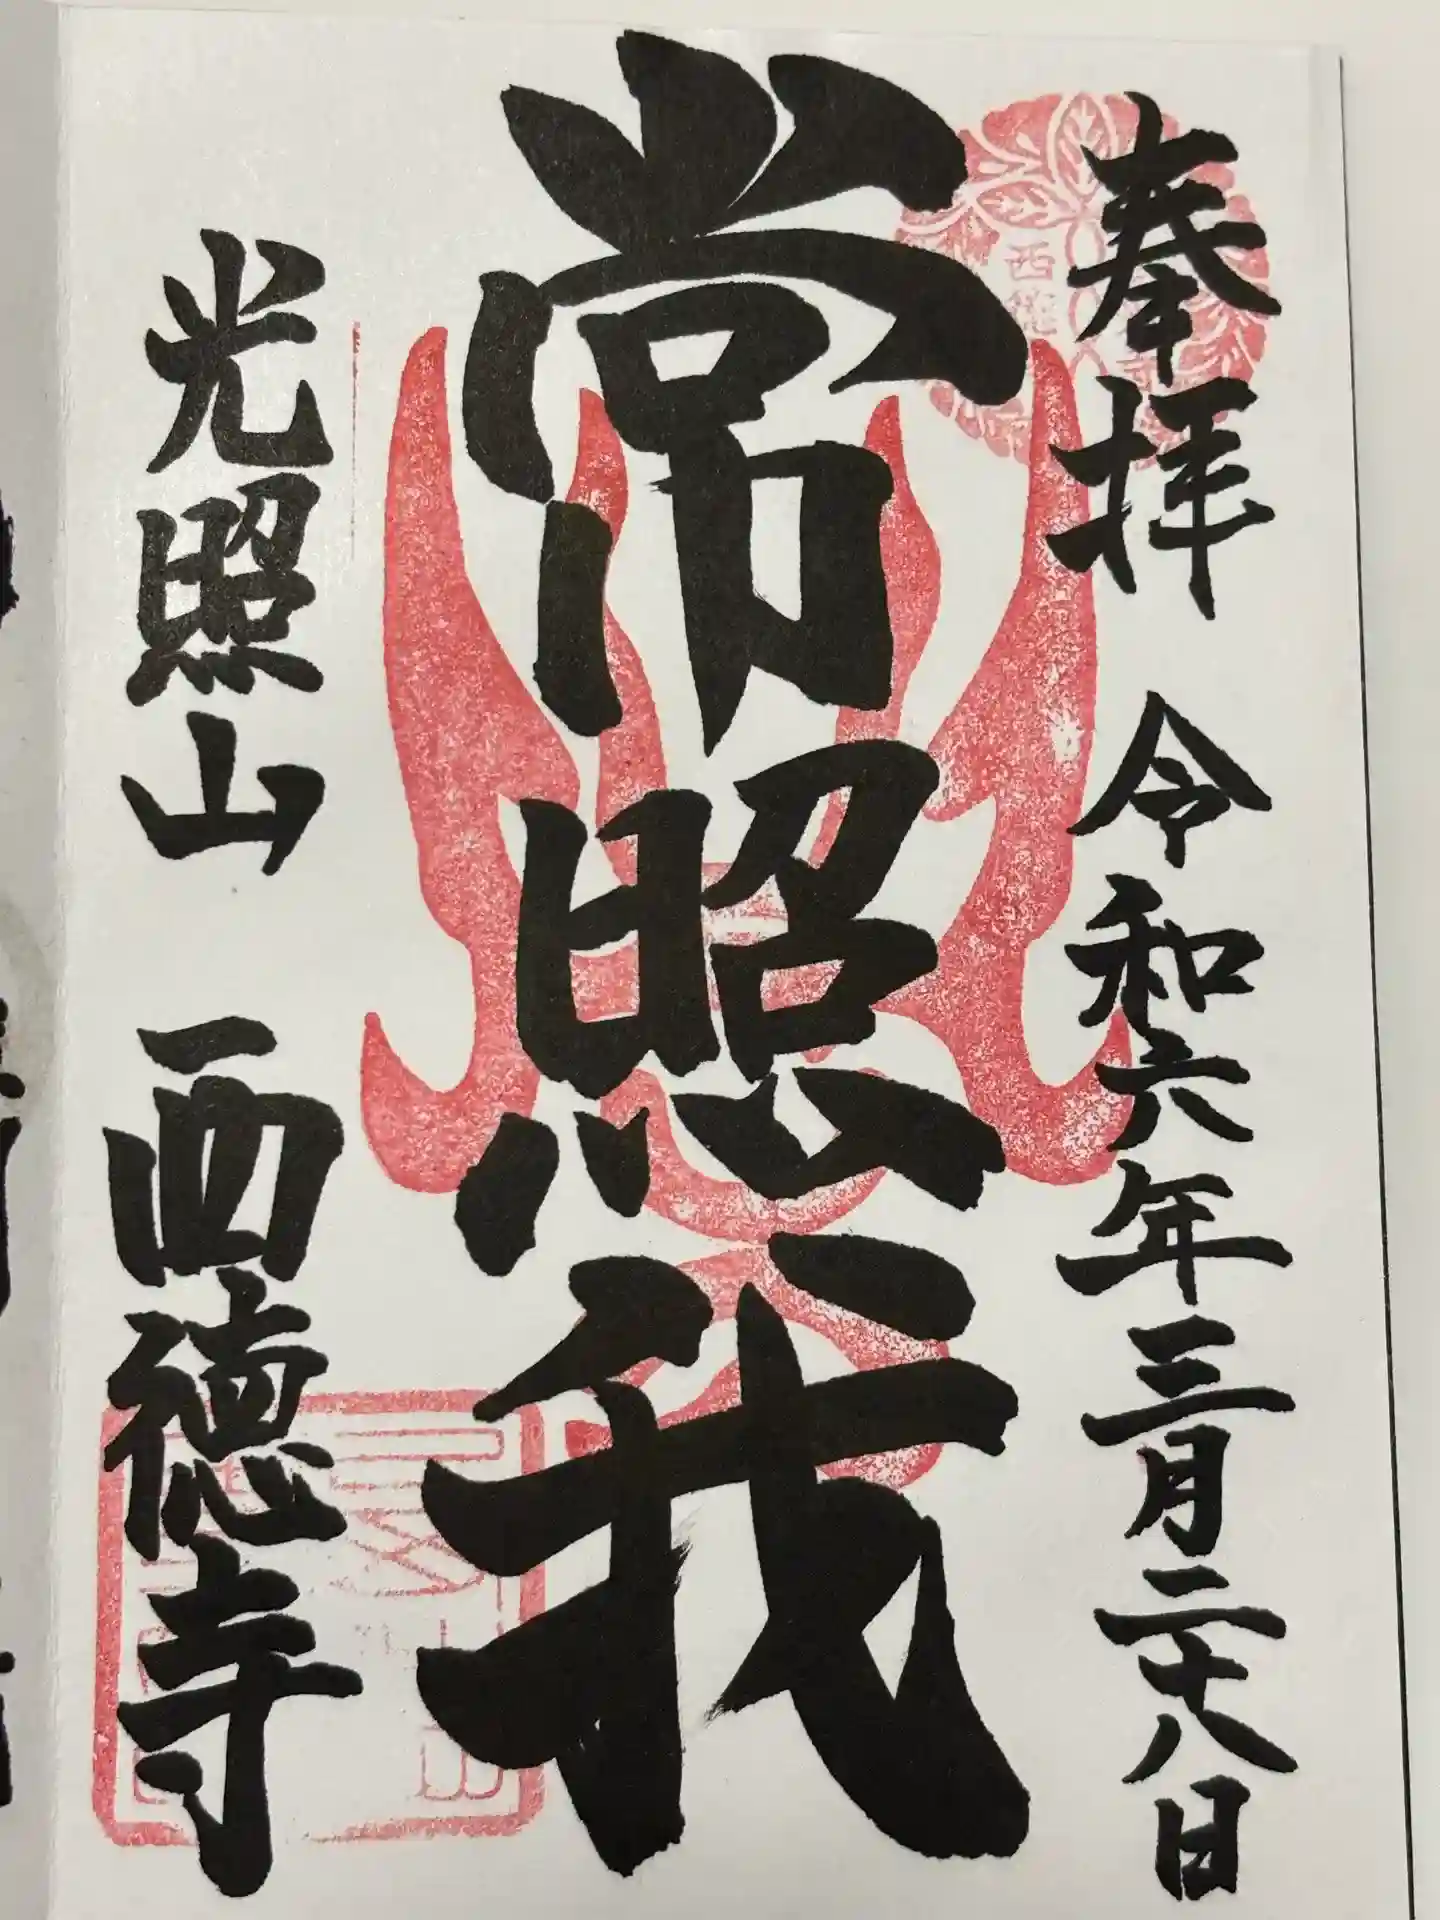 奉拝 令和六年三月二十八日
常照我
光照山 西徳寺
西徳